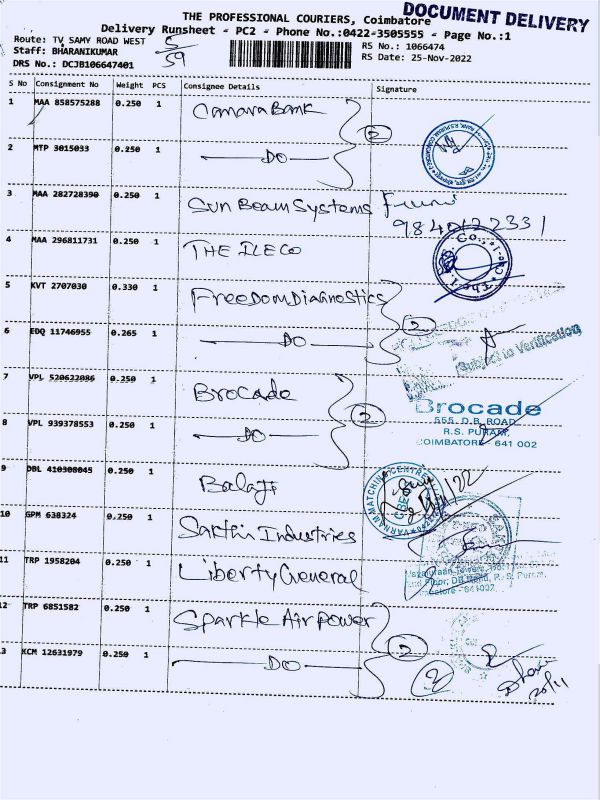 DOCUMENT DELIVERY
THE PROFESSIONAL COURIERS, Coimbatore
Delivery Runsheet - PC2 - Phone No.:0422-3505555 - Page No.:1
Route: TV SAMY ROAD WEST
Staff: BHARANIKUMAR
DRS No.: DCJB106647401
5/59
RS No.: 1066474
RS Date: 25-Nov-2022
S No Consignment No Weight PCS Consignee Details Signature
1 MAA 858575288 0.250 1 Canara Bank
2
2 MTP 3015033 0.250 1 DO
3 MAA 282728390 0.250 1 Sun Beam Systems
9840122331
4 MAA 296811731 0.250 1 THE ILECO
5 KVT 2707030 0.330 1 Freedom Diagnostics
2
6 EDQ 11746955 0.265 1 DO
Subject to Verification
7 VPL 520622086 0.250 1 Brocade
2
Brocade
555, D.B. ROAD,
R.S. PURAM,
COIMBATORE 641 002
8 VPL 939378553 0.250 1 DO
9 DBL 410308045 0.250 1 Balaji
VARNAM MATCHING CENTRE
10 GPM 638324 0.250 1 Sakthi Industries
11 TRP 1958204 0.250 1 Liberty General
2nd Floor, DB Road, R. S. Puram,
Coimbatore - 641002
12 TRP 6851582 0.250 1 Sparkle Air Power
2
13 KCM 12631979 0.250 1 DO
2